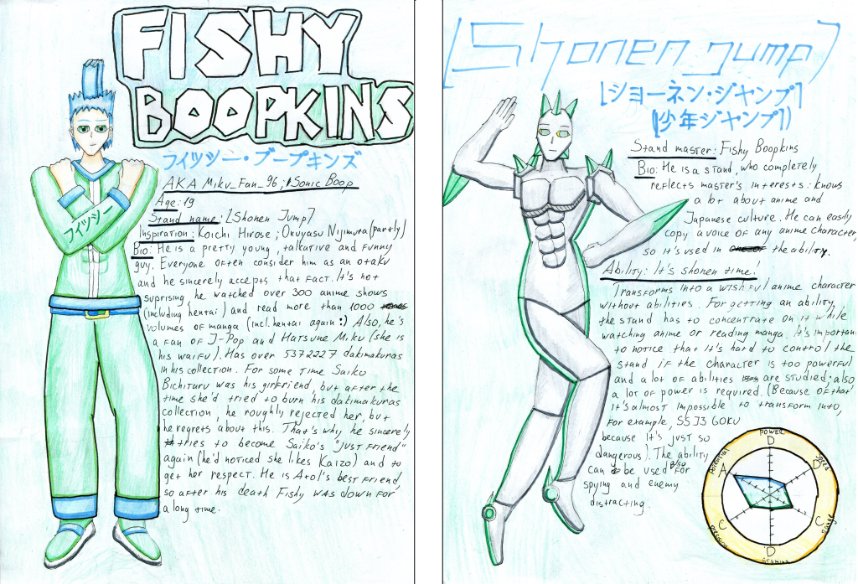 FISHY
BOOPKINS
フィツシー・ブープキンズ
AKA Miku_Fan_96; Sonic Boop
Age: 19
Stand name: [Shonen Jump]
Inspiration: Koichi Hirose; Okuyasu Nijimura (partly)
Bio: He is a pretty young, talkative and funny
guy. Everyone often consider him as an otaku
and he sincerely accepts that fact. It's not
suprising, he watched over 300 anime shows
(including hentai) and read more than 1000
volumes of manga (incl. hentai again:) Also, he's
a fan of J-Pop and Hatsune Miku (she is
his waifu). Has over 5372227 dakimakuras
in his collection. For some time Saiko
Bichitaru was his girlfriend, but after the
time she'd tried to burn his dakimakuras
collection, he roughly rejected her, but
he regrets about this. That's why he sincerely
tries to become Saiko's "just friend"
again (he'd noticed she likes Kaizo) and to
get her respect. He is Axol's best friend,
so after his death Fishy was down for
a long time.
フィツシー
[Shonen Jump]
[ショーネン・ジャンプ]
(少年ジャンプ)
Stand master: Fishy Boopkins
Bio: He is a stand, who completely
reflects master's interests: knows
a lot about anime and
Japanese culture. He can easily
copy a voice of any anime character
so it's used in the ability.
Ability: It's shonen time!
Transforms into a wishful anime character
without abilities. For getting an ability,
the stand has to concentrate on it while
watching anime or reading manga. It's important
to notice that it's hard to control the
stand if the character is too powerful
and a lot of abilities are studied; also
a lot of power is required. (Because of that
it's almost impossible to transform into,
for example, SSJ3 Goku
because it's just so
dangerous). The ability
can be used for
spying and enemy
distracting.
power
D
speed
C
range
D
C
A
potential